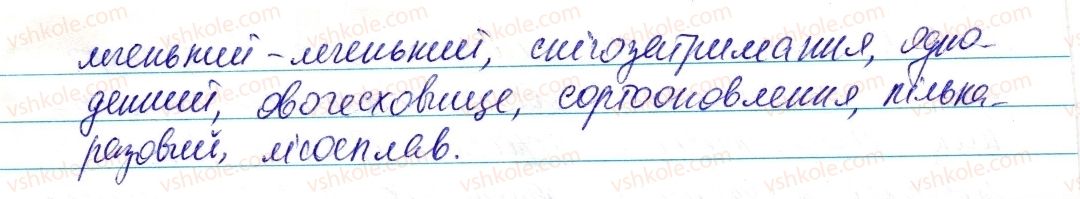 легенький - легенький, снігозатримання, одно-
денний, овочесховище, сортооновлення, кілька-
разовий, лісосплав.